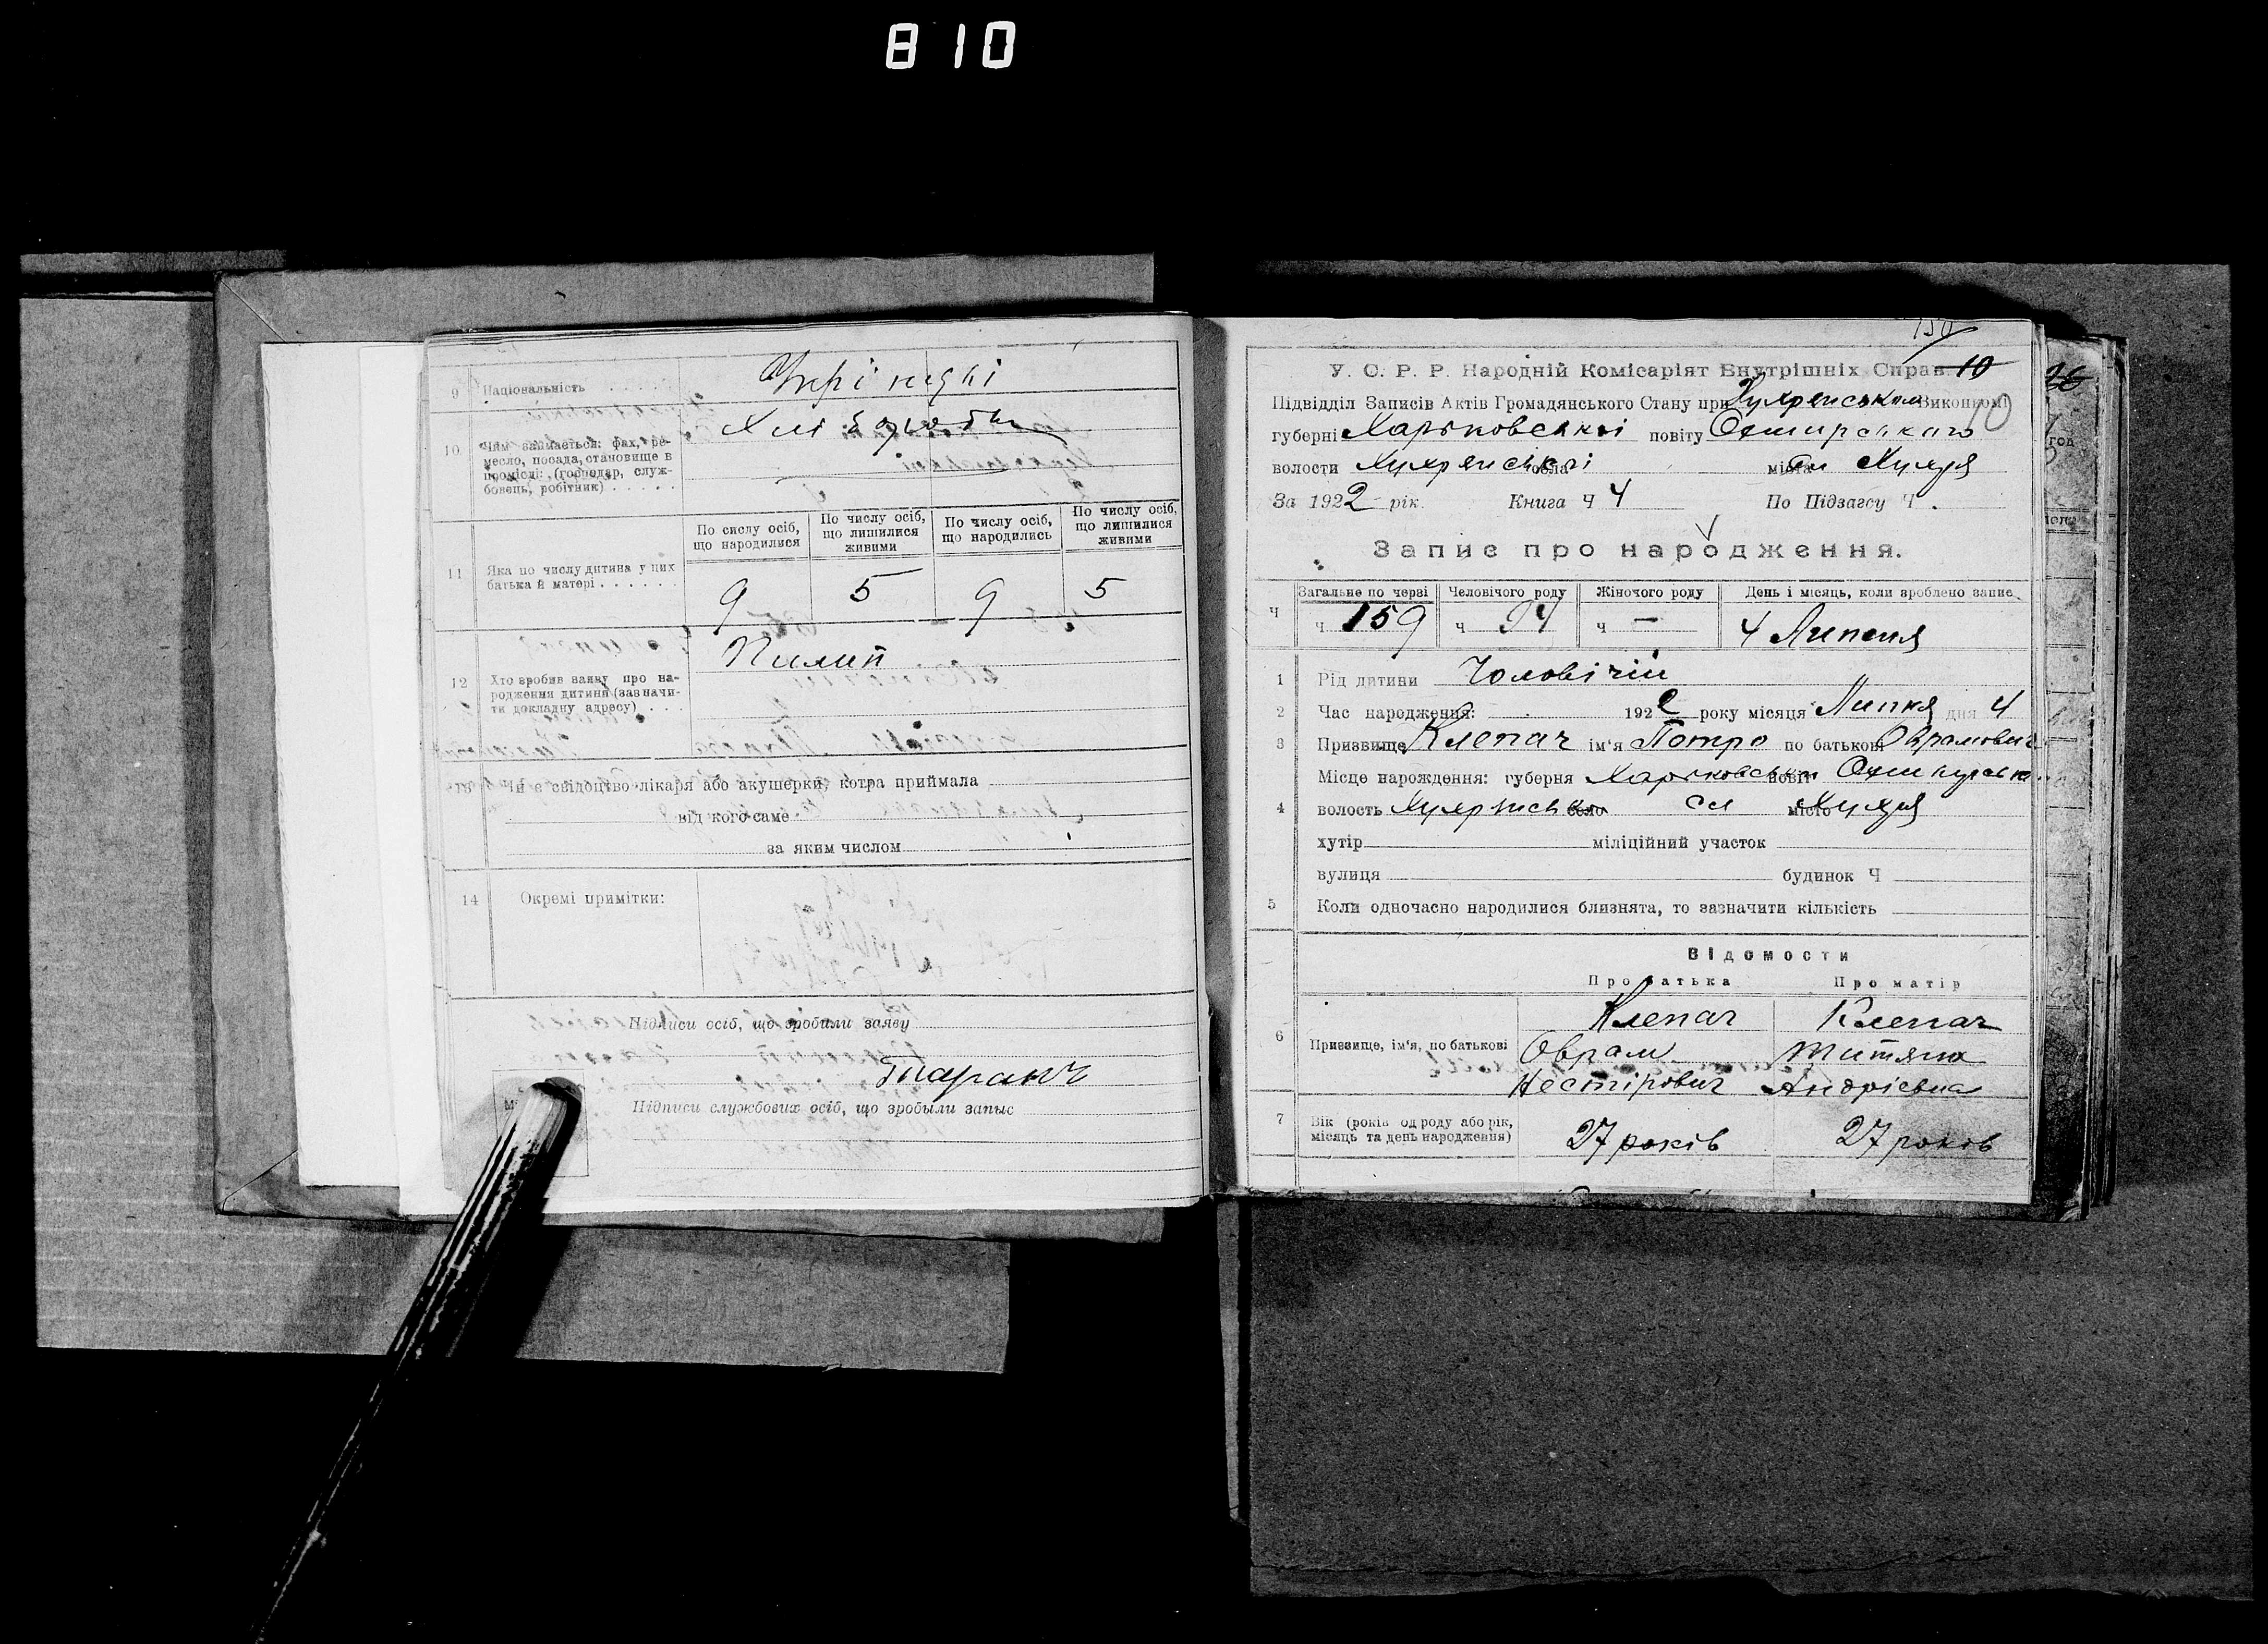 810
9 Національність . . . . .
10 Чим займається: фах, ре-
месло, посада, становище в
промислі: (господар, служ-
бовець, робітник) . . . . .
Хліборобы
11 Яка по числу дитина у цих
батька й матері . . . . . .
По числу осіб, що народилися
По числу осіб, що лишилися живими
По числу осіб, що народились
По числу осіб, що лишилися живими
9 5 9 5
12 Хто зробив заяву про на-
родження дитини (зазначи-
ти докладну адресу) . . .
Пилип
13 Чи є свідоцтво лікаря або акушерки, котра приймала
від кого саме
за яким числом
14 Окремі примітки:
Підписи осіб, що зробили заяву
Підписи службових осіб, що зробыли запыс
150
У. С. Р. Р. Народній Комісаріят Внутрішніх Справ. 10
Підвідділ Записів Актів Громадянського Стану при Хухренськом Виконкомі
10
губерні Харьковської повіту Охтирського
волости Хухренської села міста сл Хухря
За 1922 рік. Книга Ч 4 По Підзагсу Ч .
Запис про народження.
Ч Загальне по черзі Человічого роду Жіночого роду День і місяць, коли зроблено запис
ч 159 ч 94 ч — 4 Липня
1 Рід дитини Чоловічій
2 Час народження: 1922 року місяця Липня дня 4
3 Призвище Клепач ім'я Потро по батькові Оврамович
4 Місце нарождення: губерня Харьковська повіт Охтирськ
волость Хухренська село сл місто Хухря
хутір міліційний участок
вулиця будинок Ч
5 Коли одночасно народилися близнята, то зазначити кількість
Відомости
Про батька Про матір
6 Призвище, ім'я, по батькові
Клепач Клепач
Оврам Титяна
Нестірович Андрієвна
7 Вік (років од роду або рік,
місяць та день народження)
27 років 27 років